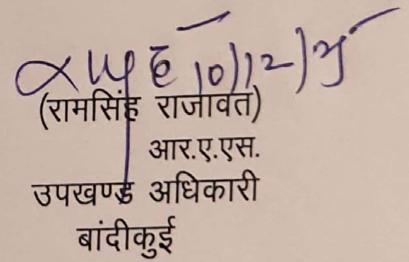 10/12/25
(रामसिंह राजावत)
आर.ए.एस.
उपखण्ड अधिकारी
बांदीकुई